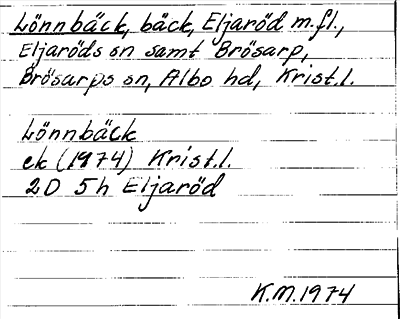 Lönnbäck, bäck, Eljaröd m.fl.,
Eljaröds sn samt Brösarp,
Brösarps sn, Albo hd, Krist.l.
Lönnbäck
ek (1974) Krist.l.
2D 5h Eljaröd
K.M.1974